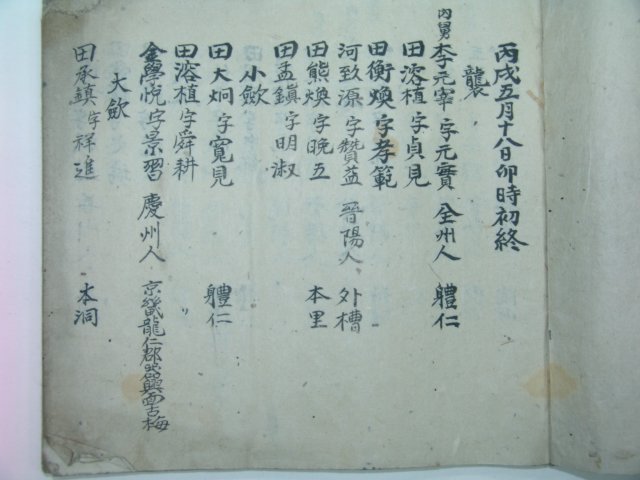 丙戌五月十八日卯時初終
襲
內舅 李元宰 字元實 全州人 軆仁
田溶植 字貞見
田衡煥 字孝範
河致源 字贊益 晉陽人 外槽
田熊煥 字晩五 本里
田孟鎭 字明淑
小斂
田大炯 字寬見 軆仁
田溶植 字舜耕 〃
金學悅 字景習 慶州人 京畿龍仁郡器興面古梅
大斂
田承鎮 字祥進 本洞